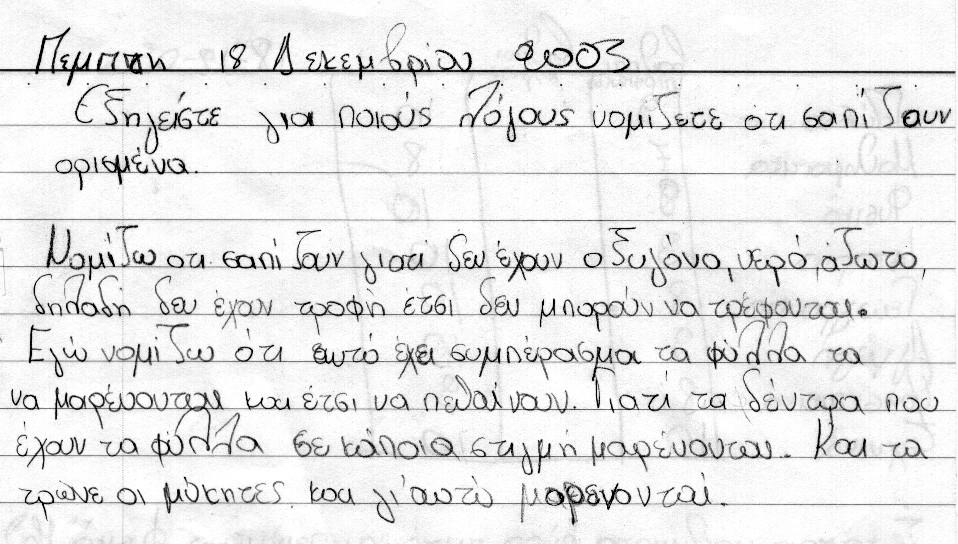 Πεμπτη 18 Δεκεμβρίου 2003
Εξηγείστε για ποιούς λόγους νομίζετε ότι σαπίζουν
ορισμένα.
Νομίζω οτι σαπίζουν γιατί δεν έχουν οξυγόνο, νερό, άζωτο,
δηλαδή δεν έχουν τροφή έτσι δεν μπορούν να τρέφονται.
Εγώ νομίζω ότι αυτό έχει συμπέρασμα τα φύλλα τα
να μαρένονται και έτσι να πεθαίνουν. Γιατί τα δέντρα που
έχουν τα φύλλα σε κάποια στιγμή μαρένονται. Και τα
τρώνε οι μύκητες και γι'αυτό μαρενονταί.